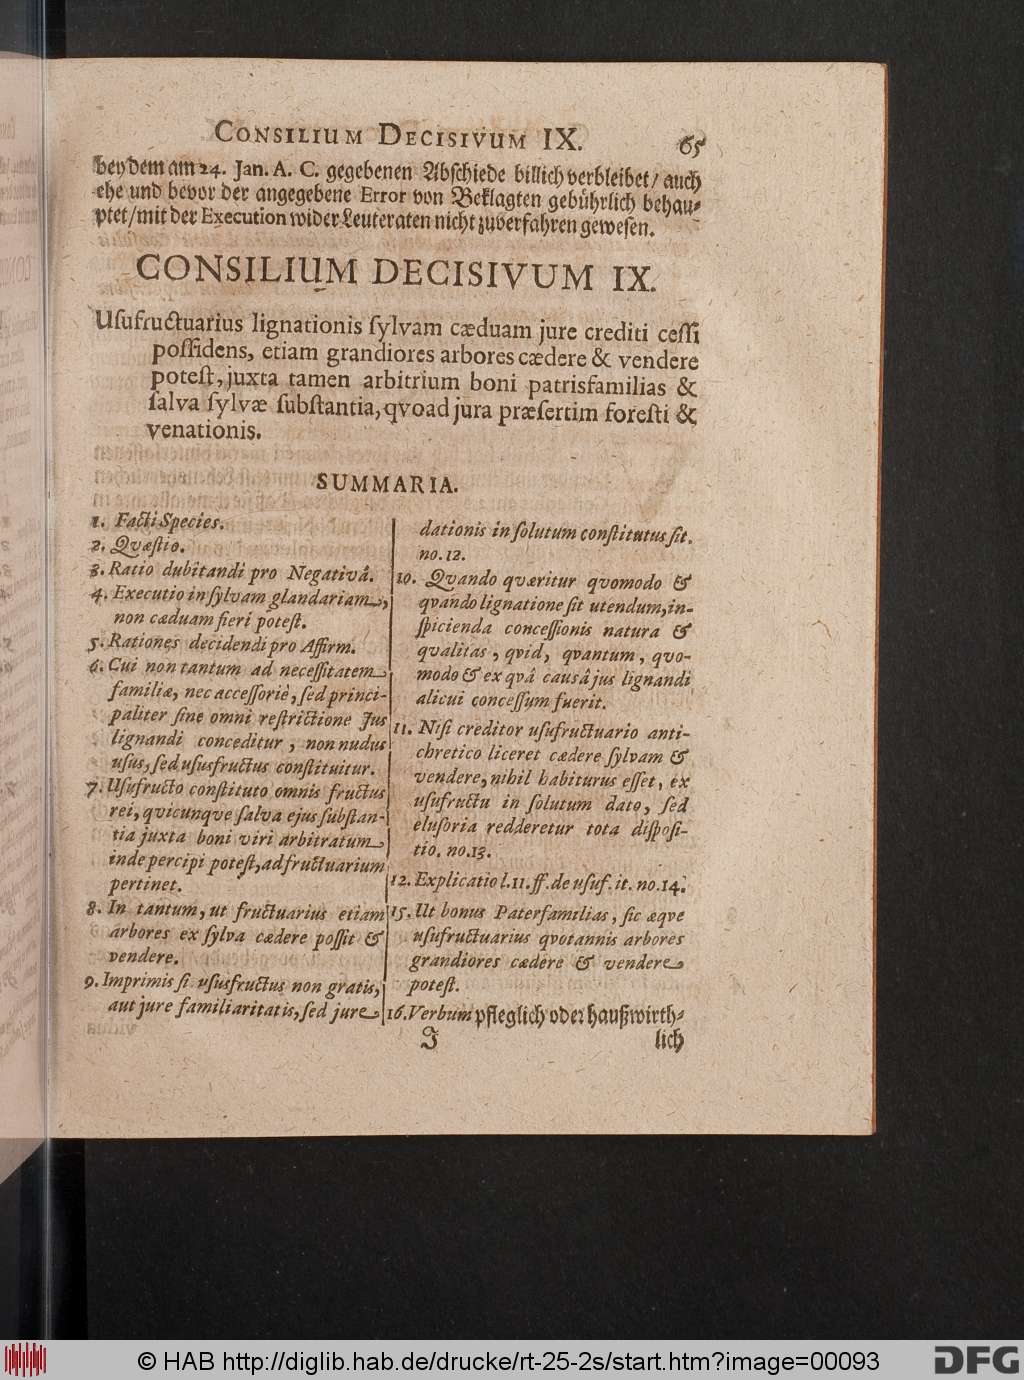 CONSILIUM DECISIVUM IX. 65
bey dem am 24. Jan. A. C. gegebenen Abschiede billich verbleibet/ auch
ehe und bevor der angegebene Error von Beklagten gebührlich behau-
ptet/ mit der Execution wider Leuteraten nicht zuverfahren gewesen.
CONSILIUM DECISIVUM IX.
Uſufructuarius lignationis ſylvam cæduam jure crediti ceſſi
poſſidens, etiam grandiores arbores cædere & vendere
poteſt, juxta tamen arbitrium boni patrisfamilias &
ſalva ſylvæ ſubſtantia, qvoad jura præſertim foreſti &
venationis.
SUMMARIA.
1. Facti Species.
2. Qvæſtio.
3. Ratio dubitandi pro Negativâ.
4. Executio in ſylvam glandariam,
non cæduam fieri poteſt.
5. Rationes decidendi pro Affirm.
6. Cui non tantum ad neceſſitatem
familiæ, nec acceſſoriè, ſed princi-
paliter ſine omni reſtrictione Jus
lignandi conceditur, non nudus
uſus, ſed uſusfructus conſtituitur.
7. Uſufructo conſtituto omnis fructus
rei, qvicunqve ſalva ejus ſubſtan-
tia juxta boni viri arbitratum
inde percipi poteſt, ad fructuarium
pertinet.
8. In tantum, ut fructuarius etiam
arbores ex ſylva cædere poſſit &
vendere.
9. Imprimis ſi uſusfructus non gratis,
aut jure familiaritatis, ſed jure
dationis in ſolutum conſtitutus ſit.
no. 12.
10. Qvando qværitur qvomodo &
qvando lignatione ſit utendum, in-
ſpicienda conceſſionis natura &
qvalitas, qvid, qvantum, qvo-
modo & ex qvâ causâ jus lignandi
alicui conceſſum fuerit.
11. Niſi creditor uſufructuario anti-
chretico liceret cædere ſylvam &
vendere, nihil habiturus eſſet, ex
uſufructu in ſolutum dato, ſed
eluſoria redderetur tota diſpoſi-
tio. no. 13.
12. Explicatio l. 11. ff. de uſuf. it. no. 14.
15. Ut bonus Paterfamilias, ſic æqve
uſufructuarius qvotannis arbores
grandiores cædere & vendere
poteſt.
16. Verbum pfleglich oder haußwirth-
J lich
© HAB http://diglib.hab.de/drucke/rt-25-2s/start.htm?image=00093 DFG